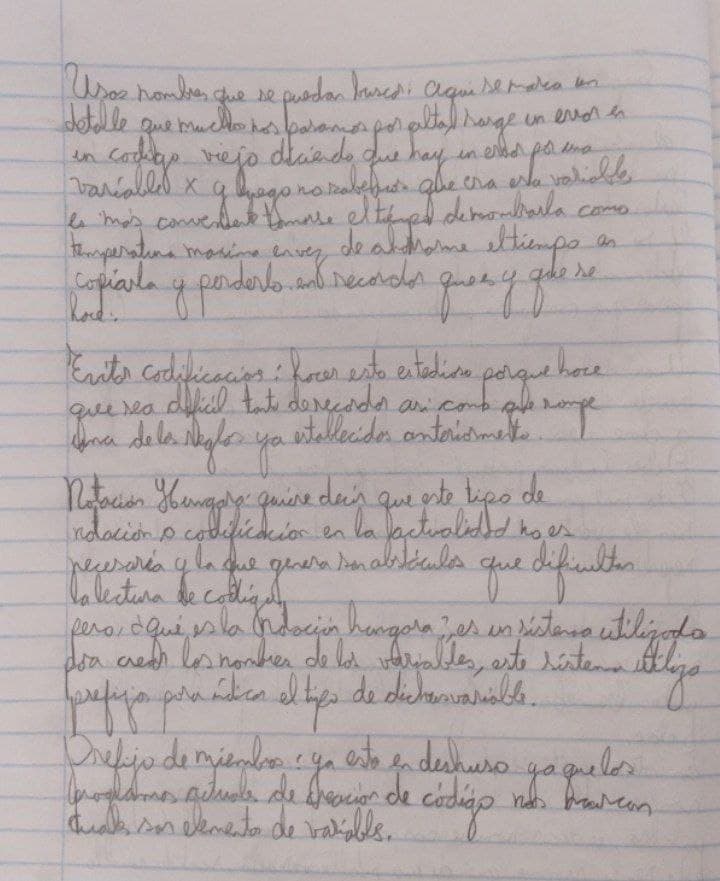 Usar nombres que se puedan buscar: aqui se marca un
detalle que muchos nos pasamos por alto, surge un error en
un codigo viejo diciendo que hay un error por una
variable x y luego no sabemos que era esta variable
es mas conveniente tomarse el tiempo de nombrarla como
temperatura maxima en vez de ahorrarme el tiempo en
copiarla y perderlo en recordar que es y que se
hace.
Evitar codificacion: hacer esto es tedioso porque hace
que sea dificil tanto de recordar asi como que rompe
una de las reglas ya establecidas anteriormente.
Notación Hungara: quiere decir que este tipo de
notación o codificación en la actualidad no es
necesaria y la que genera son obstáculos que dificultan
la lectura de codigo,
pero, ¿qué es la notación hungara?, es un sistema utilizado
para crear los nombres de las variables, este sistema utiliza
prefijo para indicar el tipo de dichas variable.
Prefijo de miembros: ya esta en deshuso ya que los
programas actuales de creación de código nos marcan
cuales son elemento de variable.